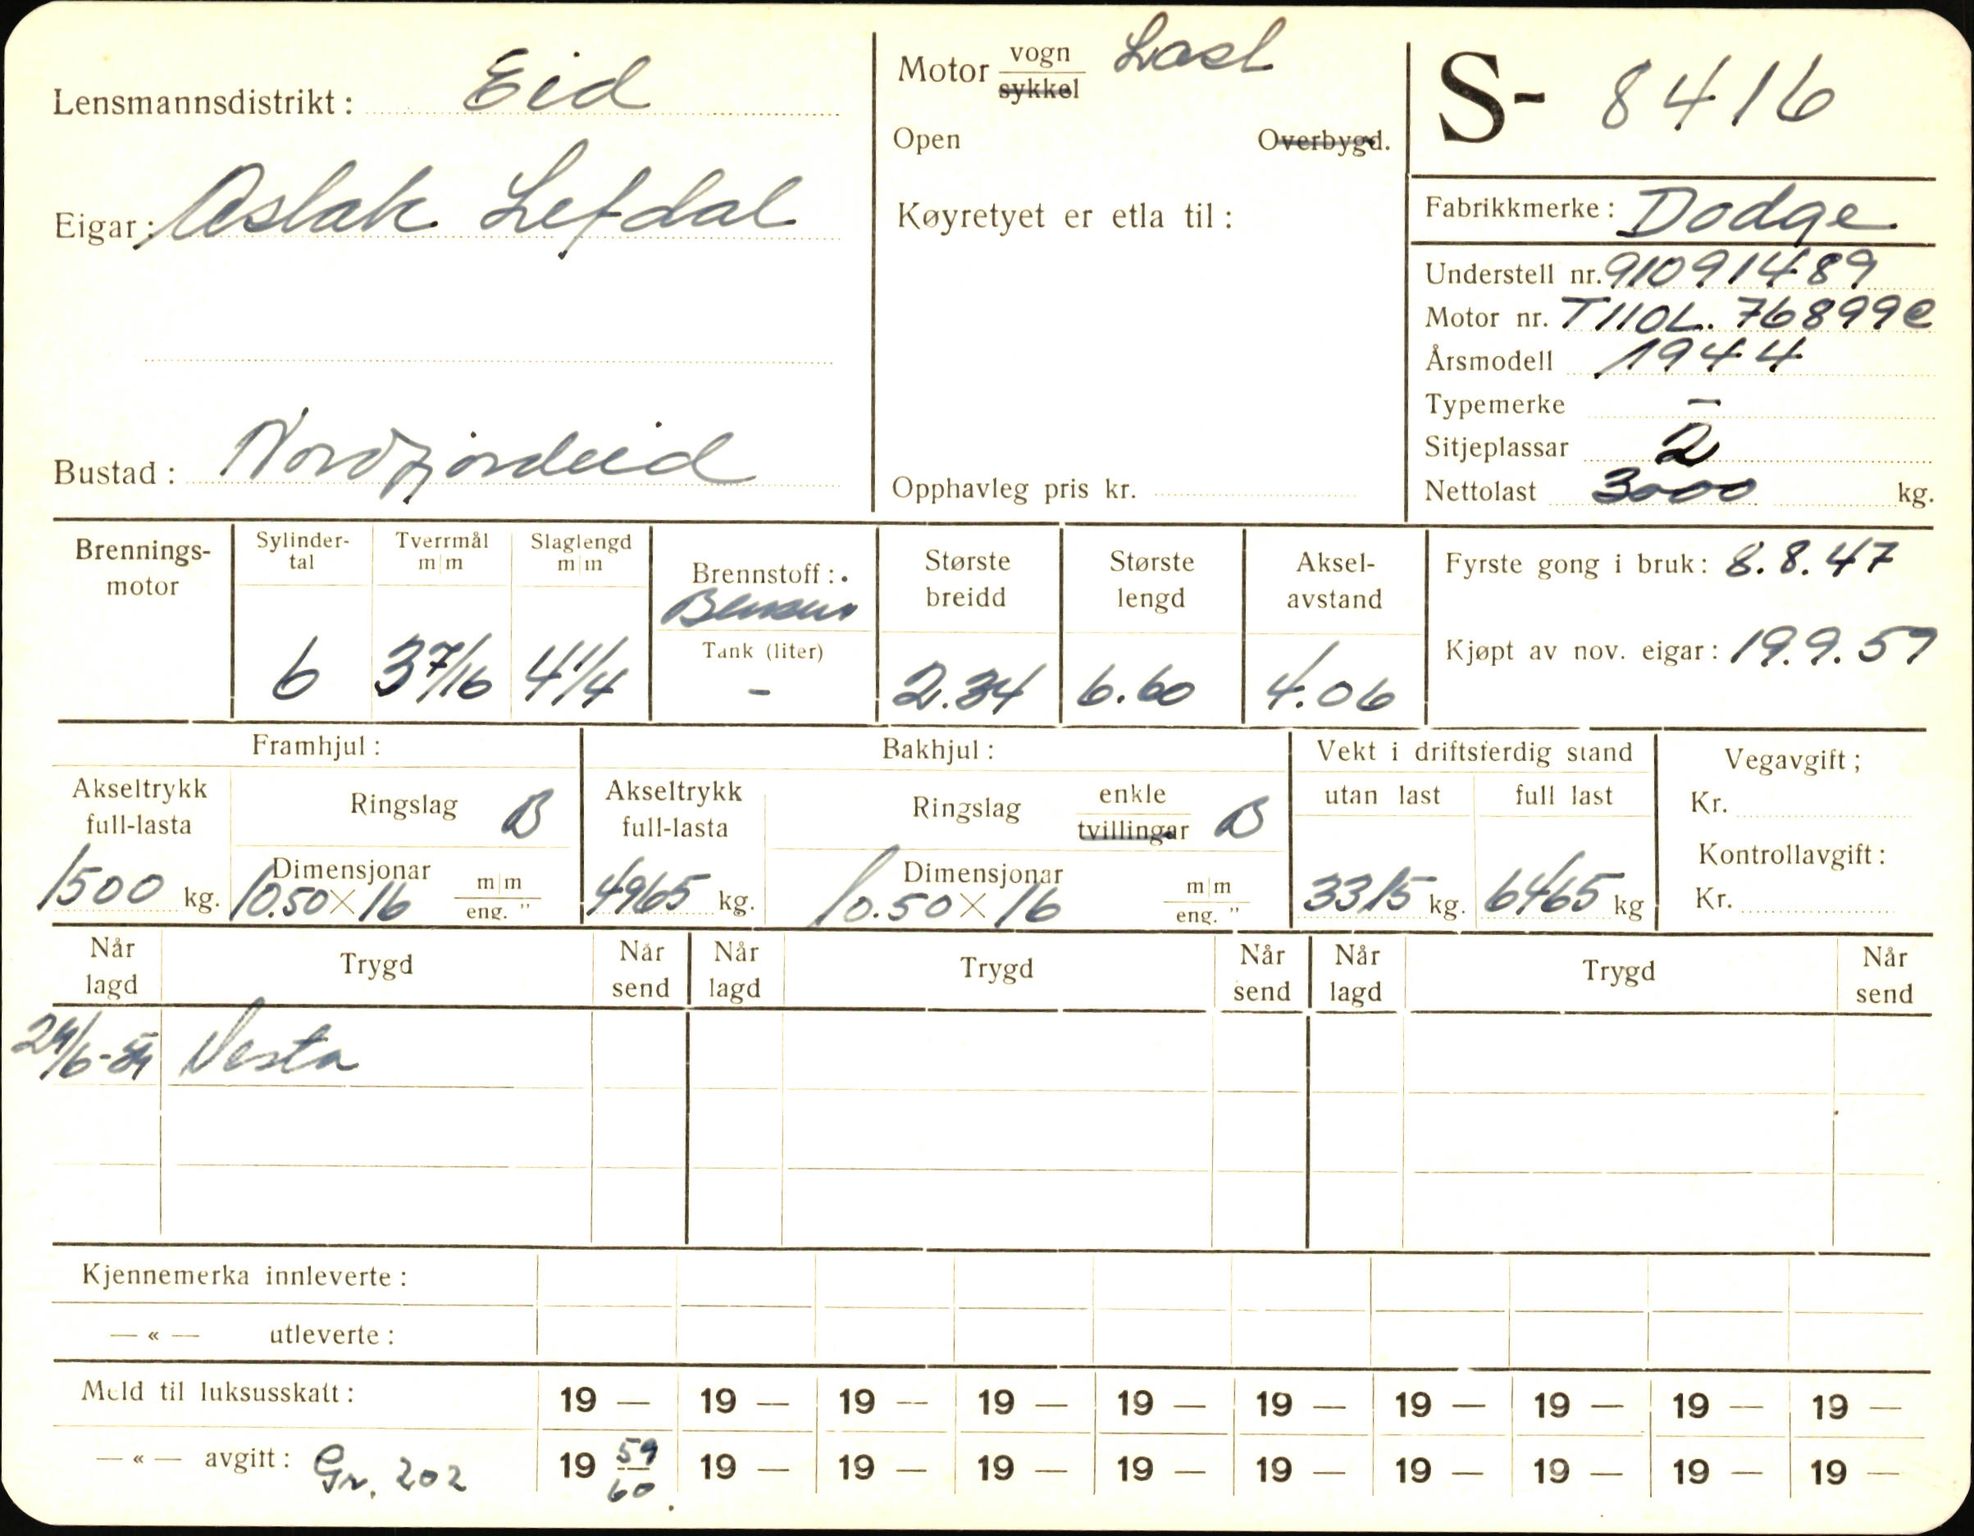 Lensmannsdistrikt: Eid
Eigar: Aslak Lefdal
Bustad: Nordfjordeid
Motor vogn Last
sykkel
Open Overbygd.
Køyretyet er etla til:
Opphavleg pris kr.
S- 8416
Fabrikkmerke: Dodge
Understell nr. 91091489
Motor nr. T110L. 76899C
Årsmodell 1944
Typemerke —
Sitjeplassar 2
Nettolast 3000 kg.
Brennings-
motor
Sylinder-
tal
6
Tverrmål
m|m
3 7/16
Slaglengd
m|m
4 1/4
Brennstoff:
Bensin
Tank (liter)
-
Største
breidd
2.34
Største
lengd
6.60
Aksel-
avstand
4.06
Fyrste gong i bruk: 8.8.47
Kjøpt av nov. eigar: 19.9.57
Framhjul:
Akseltrykk
full-lasta
1500 kg.
Ringslag B
Dimensjonar
10.50×16 m|m
eng. "
Bakhjul:
Akseltrykk
full-lasta
4965 kg.
Ringslag enkle
tvillingar B
Dimensjonar
10.50×16 m|m
eng. "
Vekt i driftsferdig stand
utan last full last
3315 kg. 6465 kg
Vegavgift;
Kr.
Kontrollavgift:
Kr.
Når
lagd Trygd Når
send Når
lagd Trygd Når
send Når
lagd Trygd Når
send
24/6-59 Vesta
Kjennemerka innleverte:
— « — utleverte:
Meld til luksusskatt: 19 — 19 — 19 — 19 — 19 — 19 — 19 — 19 — 19 — 19 —
— « — avgift: Gr. 202 19 59/60. 19 — 19 — 19 — 19 — 19 — 19 — 19 — 19 — 19 —